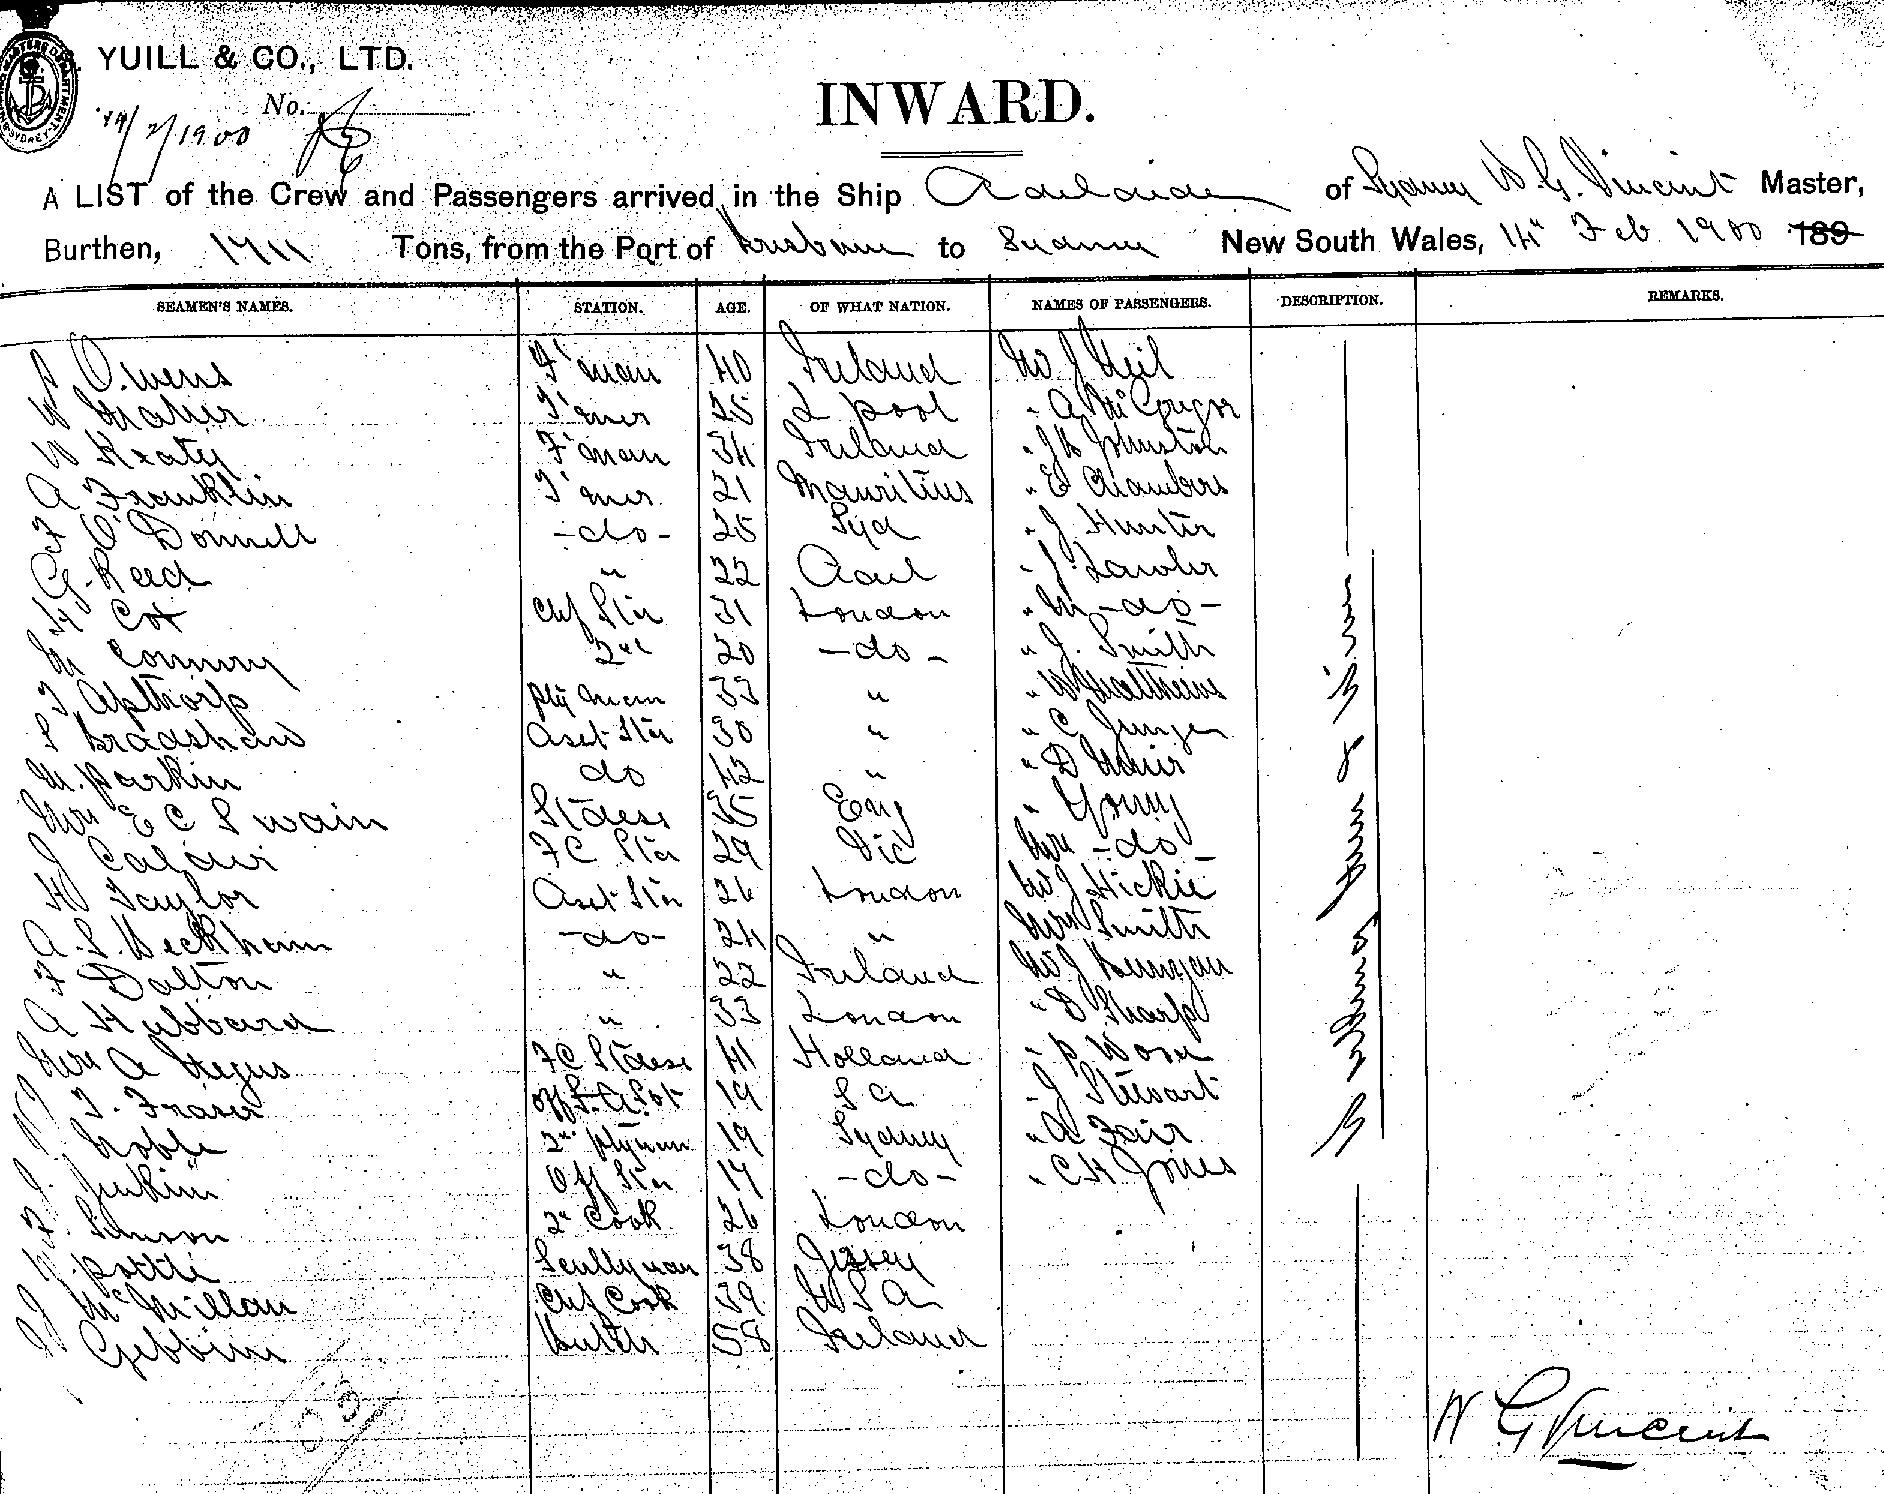 YUILL & CO., LTD.
No.
14/2/1900
INWARD.
A LIST of the Crew and Passengers arrived in the Ship Adelaide of Sydney W. G. Vincent Master,
Burthen, 1711 Tons, from the Port of Brisbane to Sydney New South Wales, 14" Feb 1900 189
SEAMEN'S NAMES. STATION. AGE. OF WHAT NATION. NAMES OF PASSENGERS. DESCRIPTION. REMARKS.
Owens F'man 40 Ireland Mr J Neil
W Maher T'mer 25 L pool " A McGregor
W Keaty F'man 34 Ireland " Johnston
A Franklin T'mer 21 Mauritius " E Chambers
O'Donnell -do- 25 Syd " J Hunter
G. Reed " 22 Adel " J. Lawler
H Cox Chf Std 31 London " M -do-
M Conmry 2nd 20 -do- " J. Smith
T Apthorp Pty man 33 " " W Matthews
S Bradshaw Asst Std 30 " " C Junge
M. Parkin do 42 " " D Muir
Mrs E C Swain Stdess 35 Eng " Young
J Calder F C Std 29 Vic Mrs -do-
H Taylor Asst Std 26 London Mr J Hickie
A. S. Beckham -do- 24 " Mrs Smith
F Dalton " 22 Ireland Mr J
A Hubbard " 33 London " D Sharp
Mrs A Negus F C Stdess 41 Holland " P
T. Fraser 19 S A " J Stewart
Noble 2nd Ptyman 19 Sydney " A Fair
J. Jenkins Off Std 17 -do- " C H Jones
F. 2" Cook 26 London
Pottle Scullyman 38 Jersey
J McMillan Chf Cook 39 U S A
Gebbins Butch 58 Ireland
W G Vincent